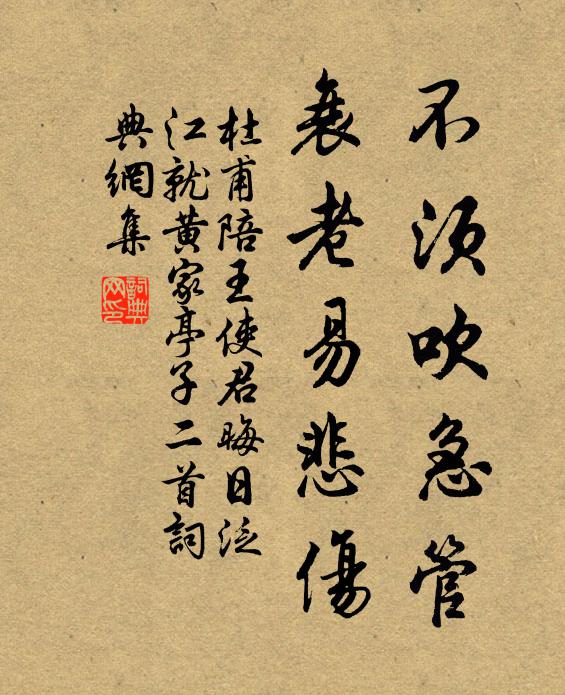 不須吹急管
衰老易悲傷
杜甫陪王使君晦日泛
江就黃家亭子二首詞
典網集
詞典
网印